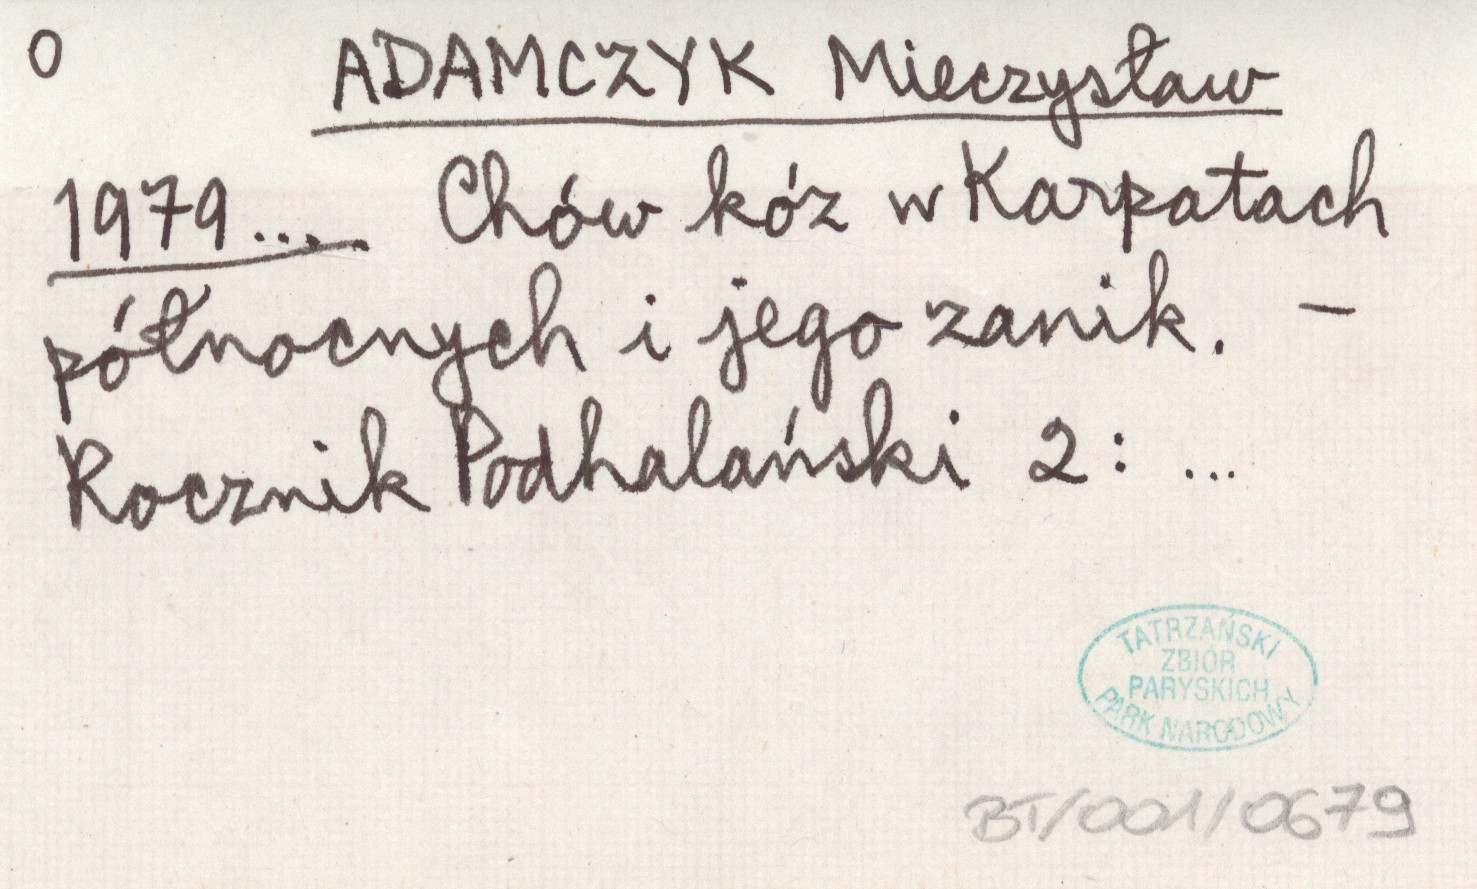 0 ADAMCZYK Mieczysław
1979.... Chów kóz w Karpatach
północnych i jego zanik. –
Rocznik Podhalański 2: ...
TATRZAŃSKI
ZBIÓR
PARYSKICH
PARK NARODOWY
BT/001/0679